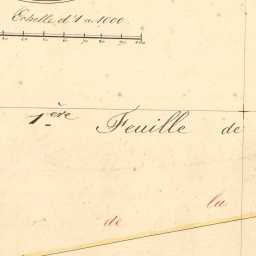 Echelle d'1 a 1000.
1.ère Feuille de
la
de